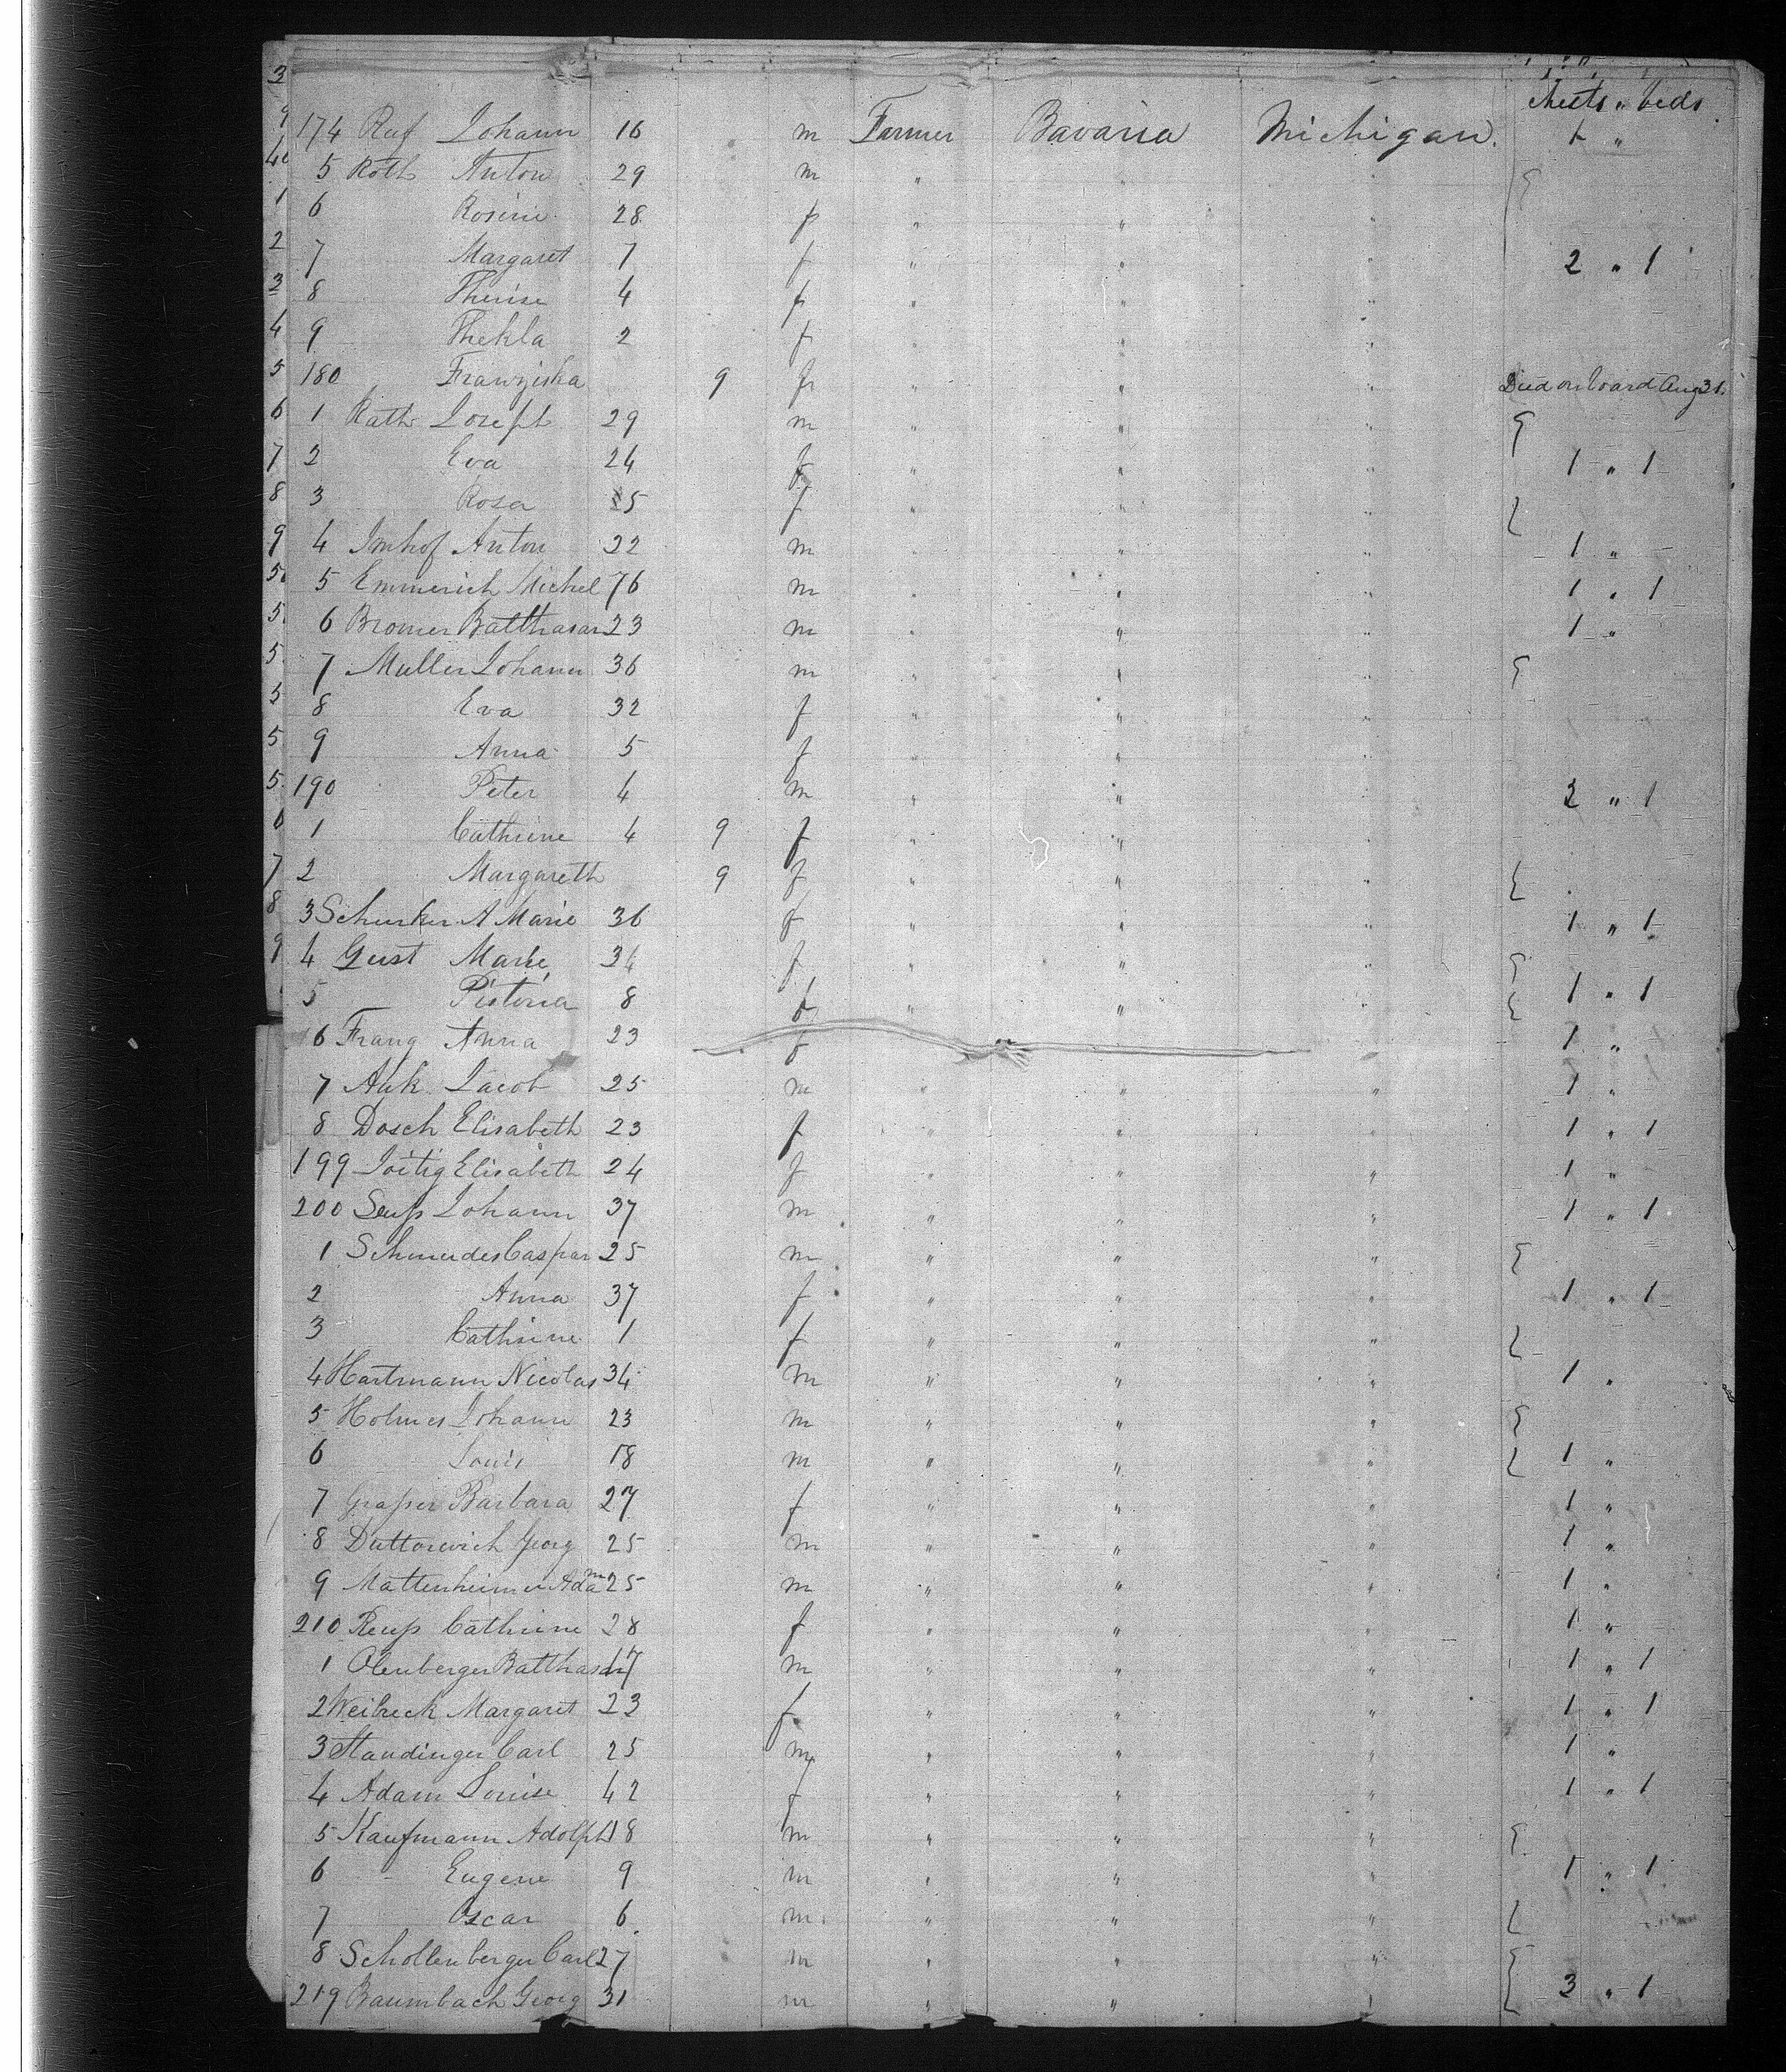 Chests " beds
174 Ruf Johann 16 m Farmer Bavaria Michigan. 1 "
5 Roth Anton 29 m " " "
6 Rosine 28 f " " "
7 Margaret 7 f " " " 2 " 1
8 Therise 4 f " " "
9 Thekla 2 f " " "
180 Franziska 9 f " " " Died on board Aug 31.
1 Rath Joseph 29 m " " "
2 Eva 24 f " " " 1 " 1
3 Rosa 5 f " " "
4 Imhof Anton 22 m " " " 1 "
5 Emmerich Michel 76 m " " " 1 " 1
6 Bromer Balthasar 23 m " " " 1 "
7 Muller Johann 36 m " " "
8 Eva 32 f " " "
9 Anna 5 f " " "
190 Peter 4 m " " " 2 " 1
1 Cathrine 4 9 f " " "
2 Margareth 9 f " " "
3 A Marie 36 f " " " 1 " 1
4 Geist Marie 34 f " " "
5 Pistoria 8 f " " " 1 " 1
6 Franz Anna 23 f 1 "
7 Auk Jacob 25 m " " " 1 "
8 Dosch Elisabeth 23 f " " " 1 " 1
199 Elisabeth 24 f " " " 1 "
200 Seuß Johann 37 m " " " 1 " 1
1 Schmerdes Caspar 25 m " " "
2 Anna 37 f " " " 1 " 1
3 Cathrine 1 f " " "
4 Hartmann Nicolas 34 m " " " 1 "
5 Holmes Johann 23 m " " "
6 Louis 18 m " " " 1 "
7 Graßer Barbara 27 f " " " 1 "
8 Georg 25 m " " " 1 "
9 Mattenheimer Adam 25 m " " " 1 "
210 Reuß Cathrine 28 f " " " 1 "
1 Olenberger Balthasar 17 m " " " 1 " 1
2 Weibeck Margaret 23 f " " " 1 " 1
3 Staudinger Carl 25 m " " " 1 "
4 Adam Louise 42 f " " " 1 " 1
5 Kaufmann Adolph 18 m " " "
6 Eugene 9 m " " " 1 " 1
7 Oscar 6 m " " "
8 Schollenberger Carl 27 m " " "
219 Baumbach Georg 31 m " " " 3 " 1